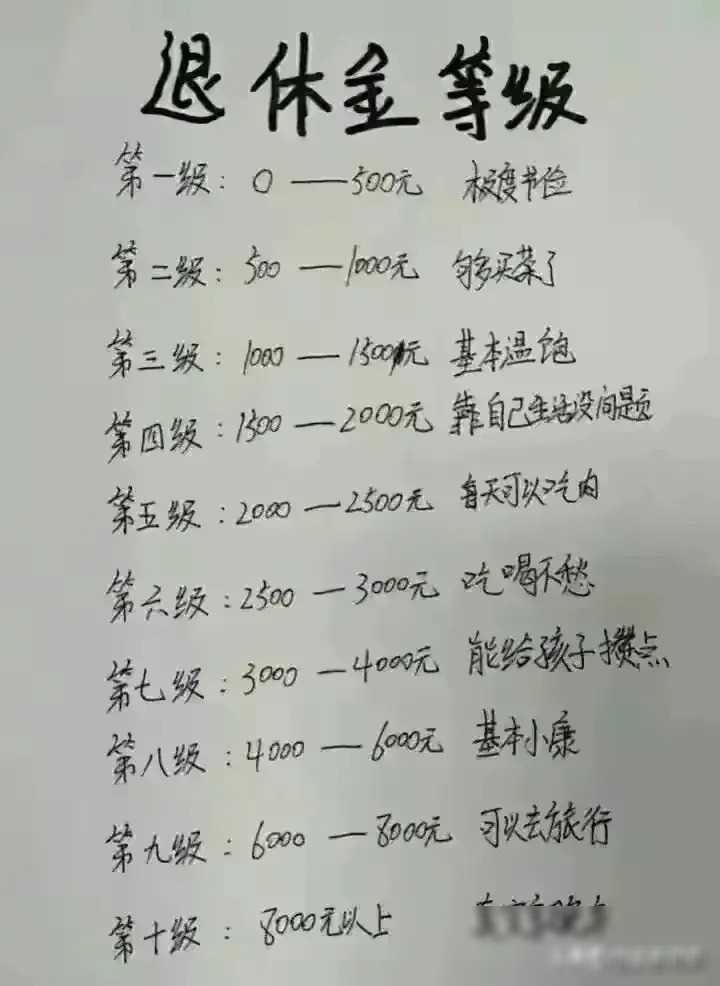 退休金等级
第一级：0——500元 极度节俭
第二级：500——1000元 够买菜了
第三级：1000——1500元 基本温饱
第四级：1500——2000元 靠自己生活没问题
第五级：2000——2500元 每天可以吃肉
第六级：2500——3000元 吃喝不愁
第七级：3000——4000元 能给孩子攒点
第八级：4000——6000元 基本小康
第九级：6000——8000元 可以去旅行
第十级：8000元以上